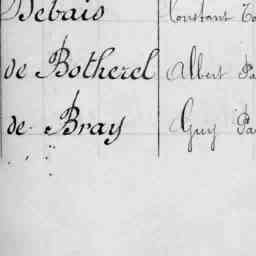 Debais Constant
de Botherel Albert Pa
de Bray Guy Pa